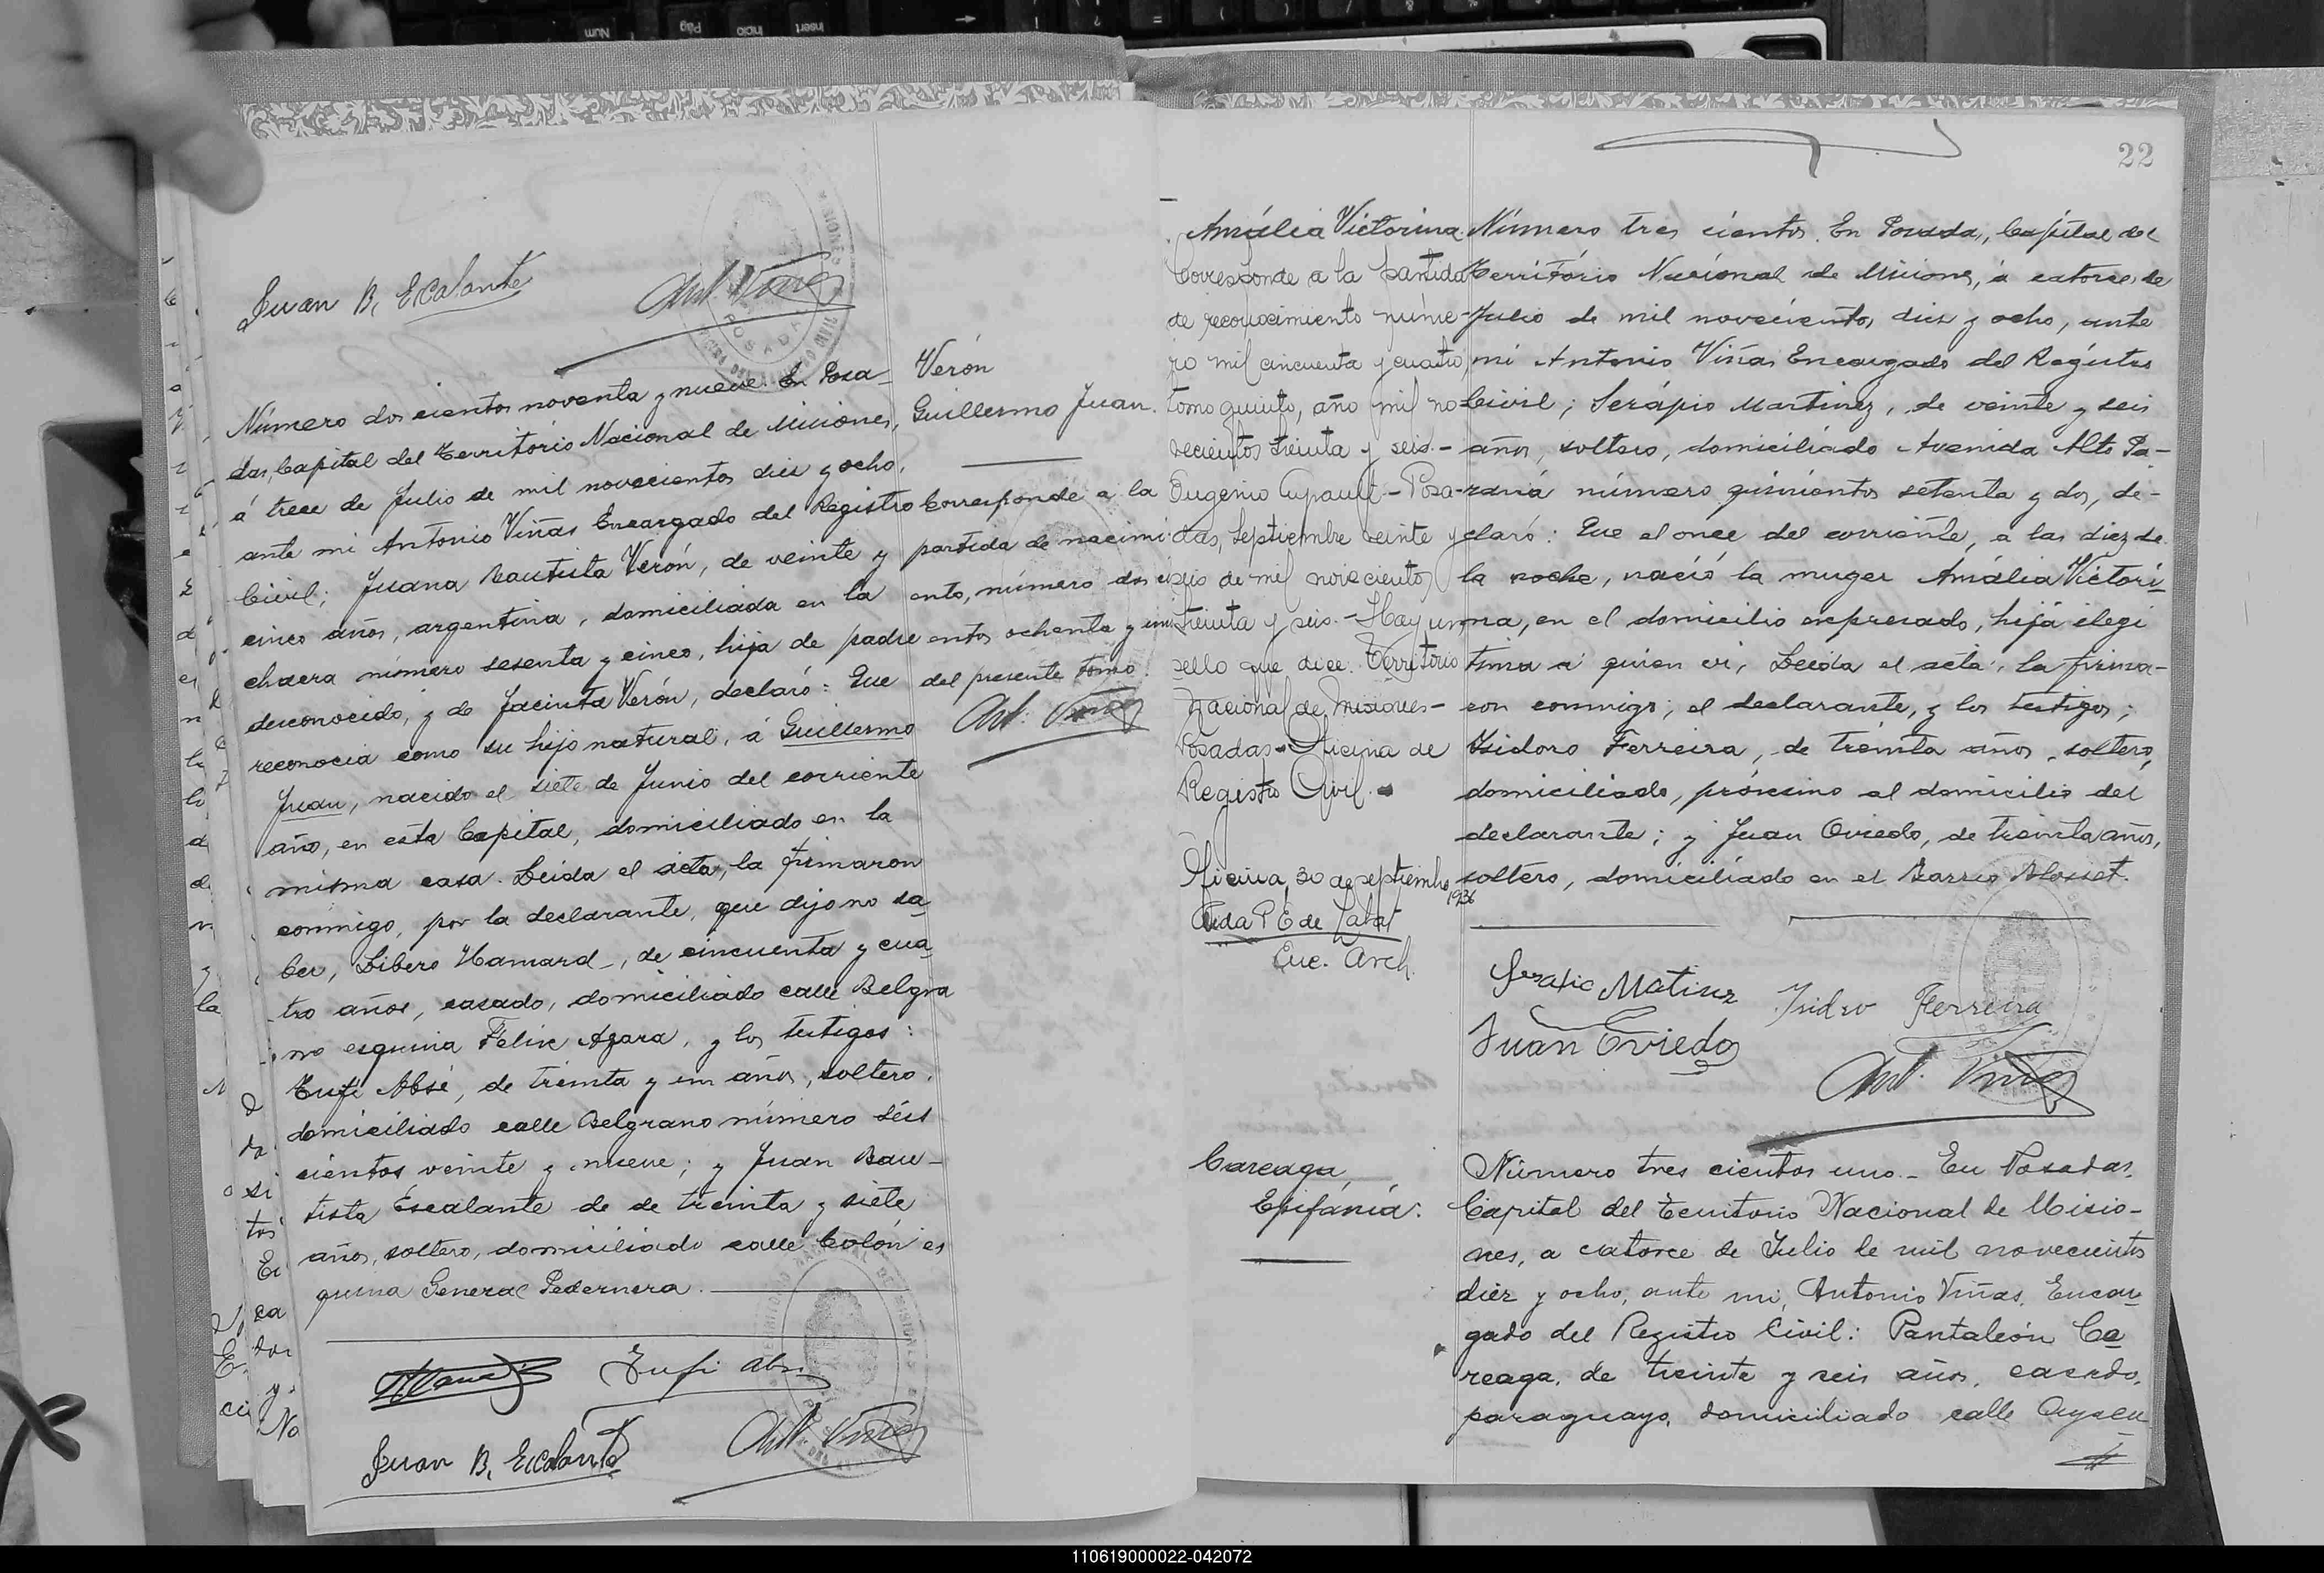 Juan B. Escalante
Ant. Viñas
Número dos cientos noventa y nueve. En Posa-
das, Capital del Territorio Nacional de Misiones,
á trece de Julio de mil novecientos diez y ocho,
ante mi Antonio Viñas Encargado del Registro
Civil; Juana Bautista Verón, de veinte y
cinco años, argentina, domiciliada en la
chacra número sesenta y cinco, hija de padre
desconocido, y de Jacinta Verón, declaró: Que
reconocia como su hijo natural, á Guillermo
Juan, nacido el siete de Junio del corriente
año, en esta Capital, domiciliado en la
misma casa. Leida el acta, la firmaron
conmigo, por la declarante, que dijo no sa-
ber, Libero Hamard, de cincuenta y cua-
tro años, casado, domiciliado calle Belgra
no esquina Felix Azara, y los testigos:
Tufi Absé, de treinta y un años, soltero,
domiciliado calle Belgrano número séis
cientos veinte y nueve; y Juan Bau-
tista Escalante de de treinta y siete
años, soltero, domiciliado calle Colón es
quina General Pedernera.
Tufi
Juan B. Escalante
Ant. Viñas
Verón
Guillermo Juan.
Corresponde a la
partida de nacimi-
ento, número dos ci
entos ochenta y un
del presente tomo.
Ant. Viñas
22
Amália Victorina
Corresponde a la partida
de reconocimiento núme-
ro mil cincuenta y cuatro
tomo quinto, año mil no-
vecientos treinta y seis.-
Eugenio - Posa-
das, Septiembre veinte y
seis de mil novecientos
treinta y seis.- Hay un
sello que dice. Territorio
Nacional de Misiones-
Posadas- Oficina de
Registro Civil.-
Oficina, 30 de septiembre
1936
Aida P E de
Enc. Arch.
Número tres cientos. En Posadas, Capital del
Territorio Nacional de Misiones, á catorce de
Julio de mil novecientos diez y ocho, ante
mi Antonio Viñas Encargado del Registro
Civil; Serápio Martinez, de veinte y seis
años, soltero, domiciliado Avenida Alto Pa-
raná número quinientos setenta y dos, de-
claró: Que el once del corriente, a las diez de
la noche, nació la muger Amália Victori-
na, en el domicilio expresado, hija ilegi
tima a quien vi, Leida el acta, la firma-
ron conmigo; el declarante, y los testigos;
Isidoro Ferreira, de treinta años, soltero,
domiciliado, próximo al domicilio del
declarante; y Juan Oviedo, de treinta años,
soltero, domiciliado en el Barrio
Serapio Matinez
Isidro Ferreira
Juan Oviedo
Ant. Viñas
Careaga
Epifánia.
Número tres cientos uno.- En Posadas,
Capital del Territorio Nacional de Misio-
nes, a catorce de Julio de mil novecientos
diez y ocho, ante mi, Antonio Viñas, Encar-
gado del Registro Civil: Pantaleón Ca
reaga, de treinta y seis años, casado,
paraguayo, domiciliado calle Ayacu
110619000022-042072